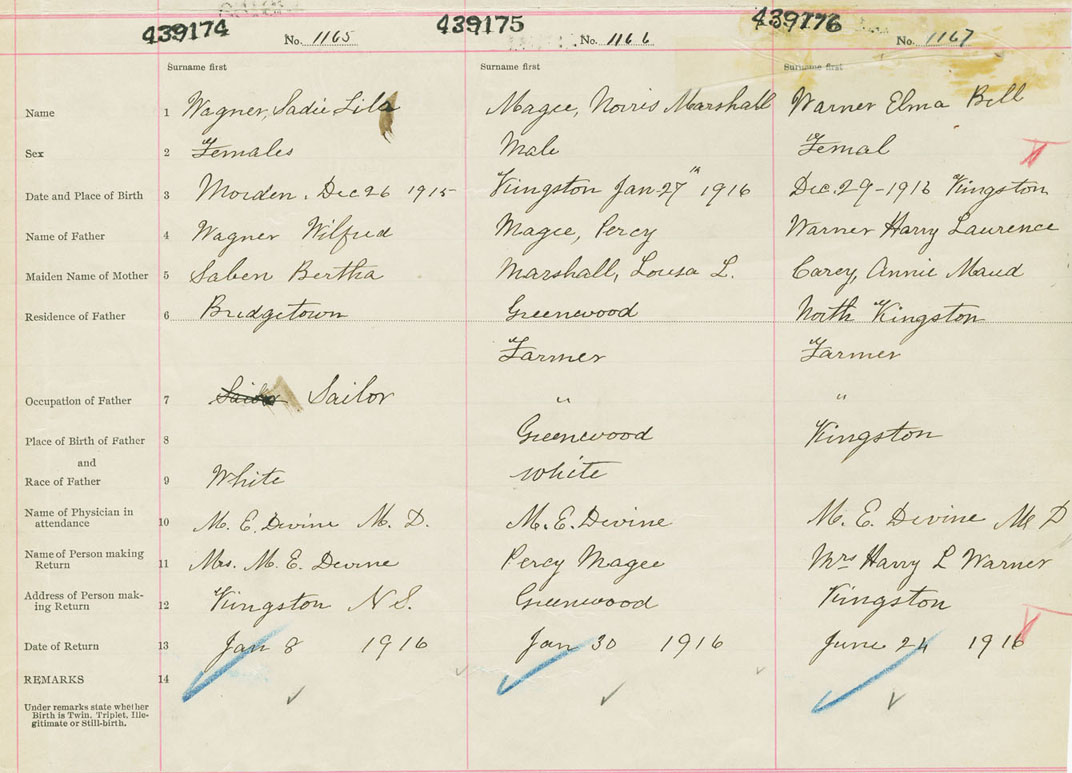 439174 439175 439176
No. 1165 No. 1166 No. 1167
Surname first Surname first Surname first
Name 1 Wagner, Sadie Lila Magee, Norris Marshall Warner Elma Bell
Sex 2 Females Male Femal
Date and Place of Birth 3 Morden, Dec 26 1915 Kingston Jan 27th 1916 Dec. 29-1913 Kingston
Name of Father 4 Wagner Wilfred Magee, Percy Warner Harry Laurence
Maiden Name of Mother 5 Saben Bertha Marshall, Lousa L. Carey, Annie Maud
Residence of Father 6 Bridgetown Greenwood North Kingston
Farmer Farmer
Occupation of Father 7 Sailor " "
Place of Birth of Father 8 Greenwood Kingston
and
Race of Father 9 White White
Name of Physician in
attendance 10 M. E. Devine M. D. M. E. Devine M. E. Devine M D
Name of Person making
Return 11 Mrs. M. E. Devine Percy Magee Mrs Harry L Warner
Address of Person mak-
ing Return 12 Kingston N S. Greenwood Kingston
Date of Return 13 Jan 8 1916 Jan 30 1916 June 24 1916
REMARKS 14
Under remarks state whether
Birth is Twin, Triplet, Ille-
gitimate or Still-birth.